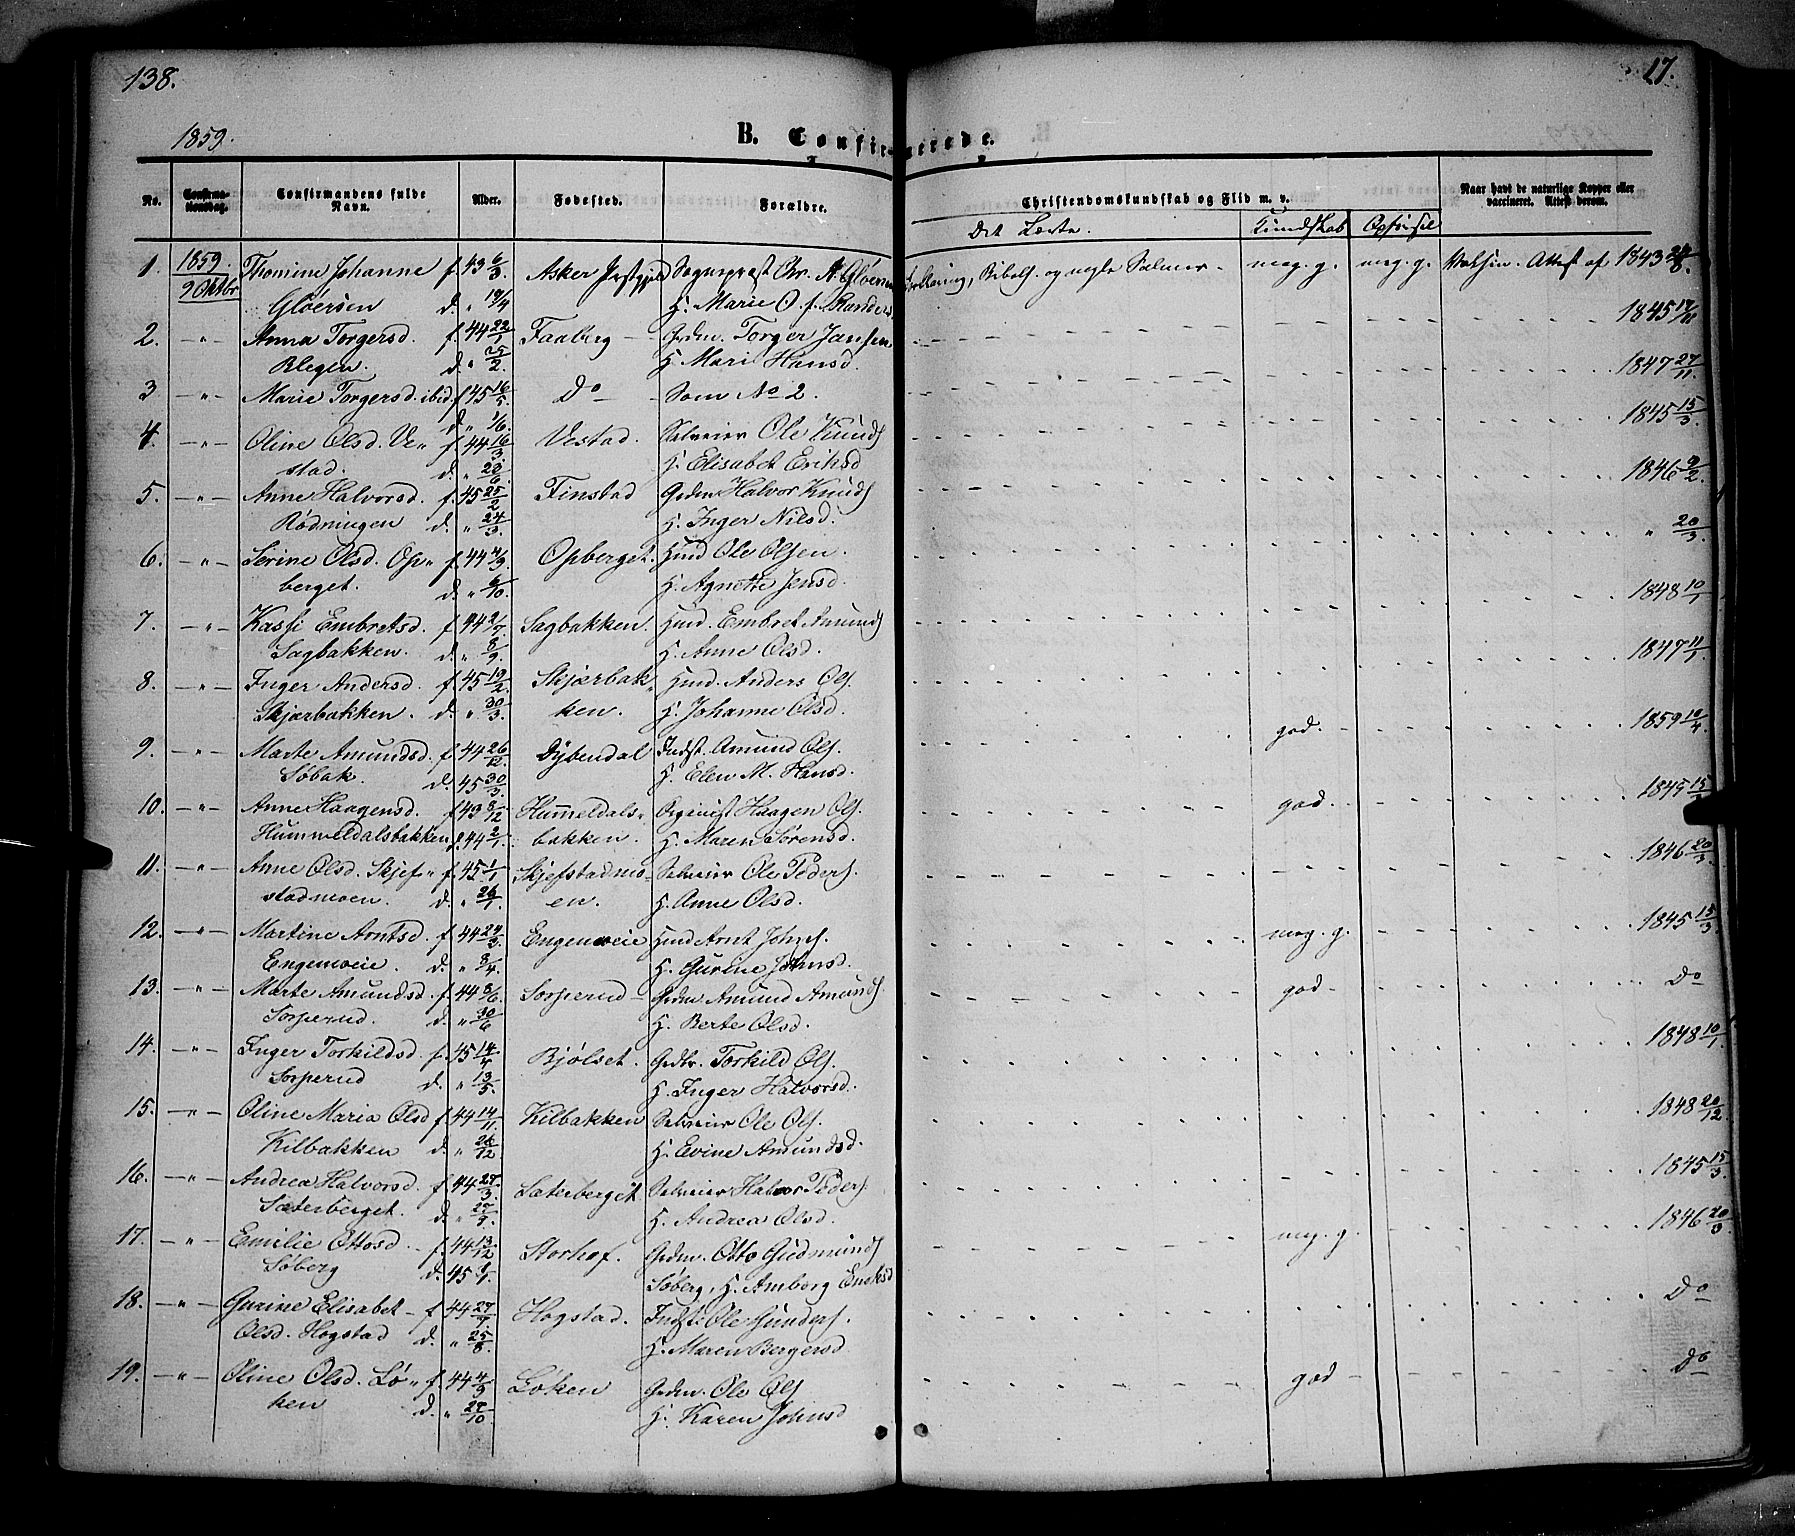 138.
17.
1859.
B. Confirmerede.
No.
Confirmationsdag.
Confirmandens fulde Navn.
Alder.
Fødested.
Forældre.
Christendomskundskab og Flid m. v.
Naar havt de naturlige Kopper eller vaccineret. Attest derom.
Det Lærte.
Kundskab
Opførsel
1. 1859. Thomine Johanne f. 43 6/3. Asker Sognepræst Chr. A. Gløersen Forklaring, Bibelh. og nogle Salmer. meg. g. meg. g. Vaksin. Attest af 1843
9 Oktbr Gløersen d. " 19/4 H. Marie O. f. Randers
2. -"- Anna Torgersd. f. 44 22/1 Faaberg Grdm. Torger Jansen 1845 17/11
Blegen. d. " 25/2. H. Mari Hansd.
3 -"- Marie Torgersd. ibid. f. 45 16/5. Do Som No 2. 1847 27/11.
d. " 1/6.
4. -"- Oline Olsd. Ve- f. 44 16/3 Vestad. Selveier Ole Knuds 1845 15/3.
stad. d. " 23/6. H. Elisabet Eriksd
5. -"- Anne Halvorsd. f. 45 25/2 Finstad Grdm Halvor Knuds 1846 9/2.
Rødningen d. " 24/3. H. Inger Nilsd.
6. -"- Serine Olsd. Op- f. 44 4/9. Opberget. Hmd Ole Olsen. " 20/3.
berget. d. " 6/10. H. Agnette Jensd.
7. -"- Kassi Embretsd. f. 44 2/7. Sagbakken Hmd. Embret Amunds 1848 10/1
Sagbakken. d. " 8/9. H. Anne Olsd.
8. -"- Inger Andersd. f. 45 19/2. Skjærbak- Hmd. Anders Ols. 1847 11/1
Skjærbakken. d. " 30/3. ken. H. Johanne Olsd.
9. -"- Marte Amundsd. f. 44 26/12. Dybendal Indst. Amund Ols. god. 1859 10/4
Søbak. d. 45 30/3. H. Elen M. Hansd.
10. -"- Anne Haagensd. f. 43 8/12 Hummeldals- Orgenist Haagen Ols. god.
Hummeldalsbakken d. 44 2/1. bakken. H. Maren Sørensd.
11. -"- Anne Olsd. Skjef- f. 45 1/1 Skjefstadmo- Selveier Ole Peders. 1846 20/3.
stadmoen. d. " 26/1. en. H. Anne Olsd.
12. -"- Martine Arntsd. f. 44 24/2. Engenveie Hmd Arnt Johns. meg. g. 1845 15/3.
Engenveie. d. " 8/4. H. Gurine Johnsd.
13. -"- Marte Amundsd. f. 44 8/6. Sorperud Grdm Amund Amunds god Do
Sorperud. d. " 30/6 H. Berte Olsd.
14. -"- Inger Torkildsd. f. 45 14/4 Bjølset. Grdbr. Torkild Ols. 1848 10/1.
Sorperud d. " 13/5. H. Inger Halvorsd.
15. -"- Oline Maria Olsd f. 44 14/11. Kilbakken Selveier Ole Ols. 1848 20/12
Kilbakken d. " 26/12 H. Evine Amundsd.
16. -"- Andrea Halvorsd. f. 44 27/3. Sæterberget Selveier Halvor Peders 1845 15/3
Sæterberget. d. " H. Andrea Olsd.
17. -"- Emilie Ottosd. f. 44 13/12 Storhof. Grdm. Otto Gudmunds meg. g. 1846 20/3
Søberg d. 45 H. Amborg Eneksd
Søberg,
18. -"- Gurine Elisabet f. 44 27/7. Hogstad. Indst. Ole Gunders. Do
Olsd. Hogstad d. " 25/8. H. Maren Bergersd
19. -"- Oline Olsd. Lø- f. 44 4/9 Løken Grdm. Ole Ols god Do
ken d. " 27/10 H. Karen Johnsd